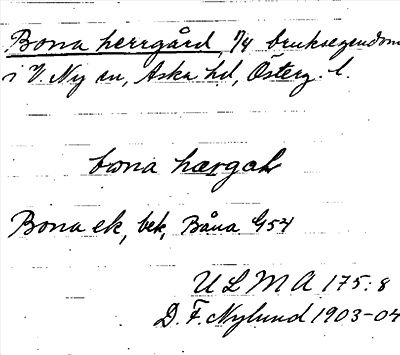 Bona herrgård, 1/4 bruksegendom
i V. Ny sn, Aska hd, Österg. l.
bona hærgaḷ
Bona ek, bek, Båna G54
ULMA 175:8
D. F. Nylund 1903-04